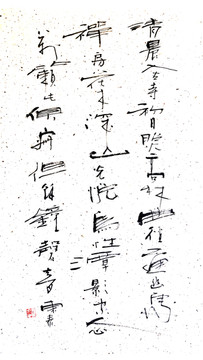 清晨入古寺初日照高林曲径通幽處
禪房花木深山光悦鳥性潭影空人心
萬籟此俱寂但餘鐘磬音